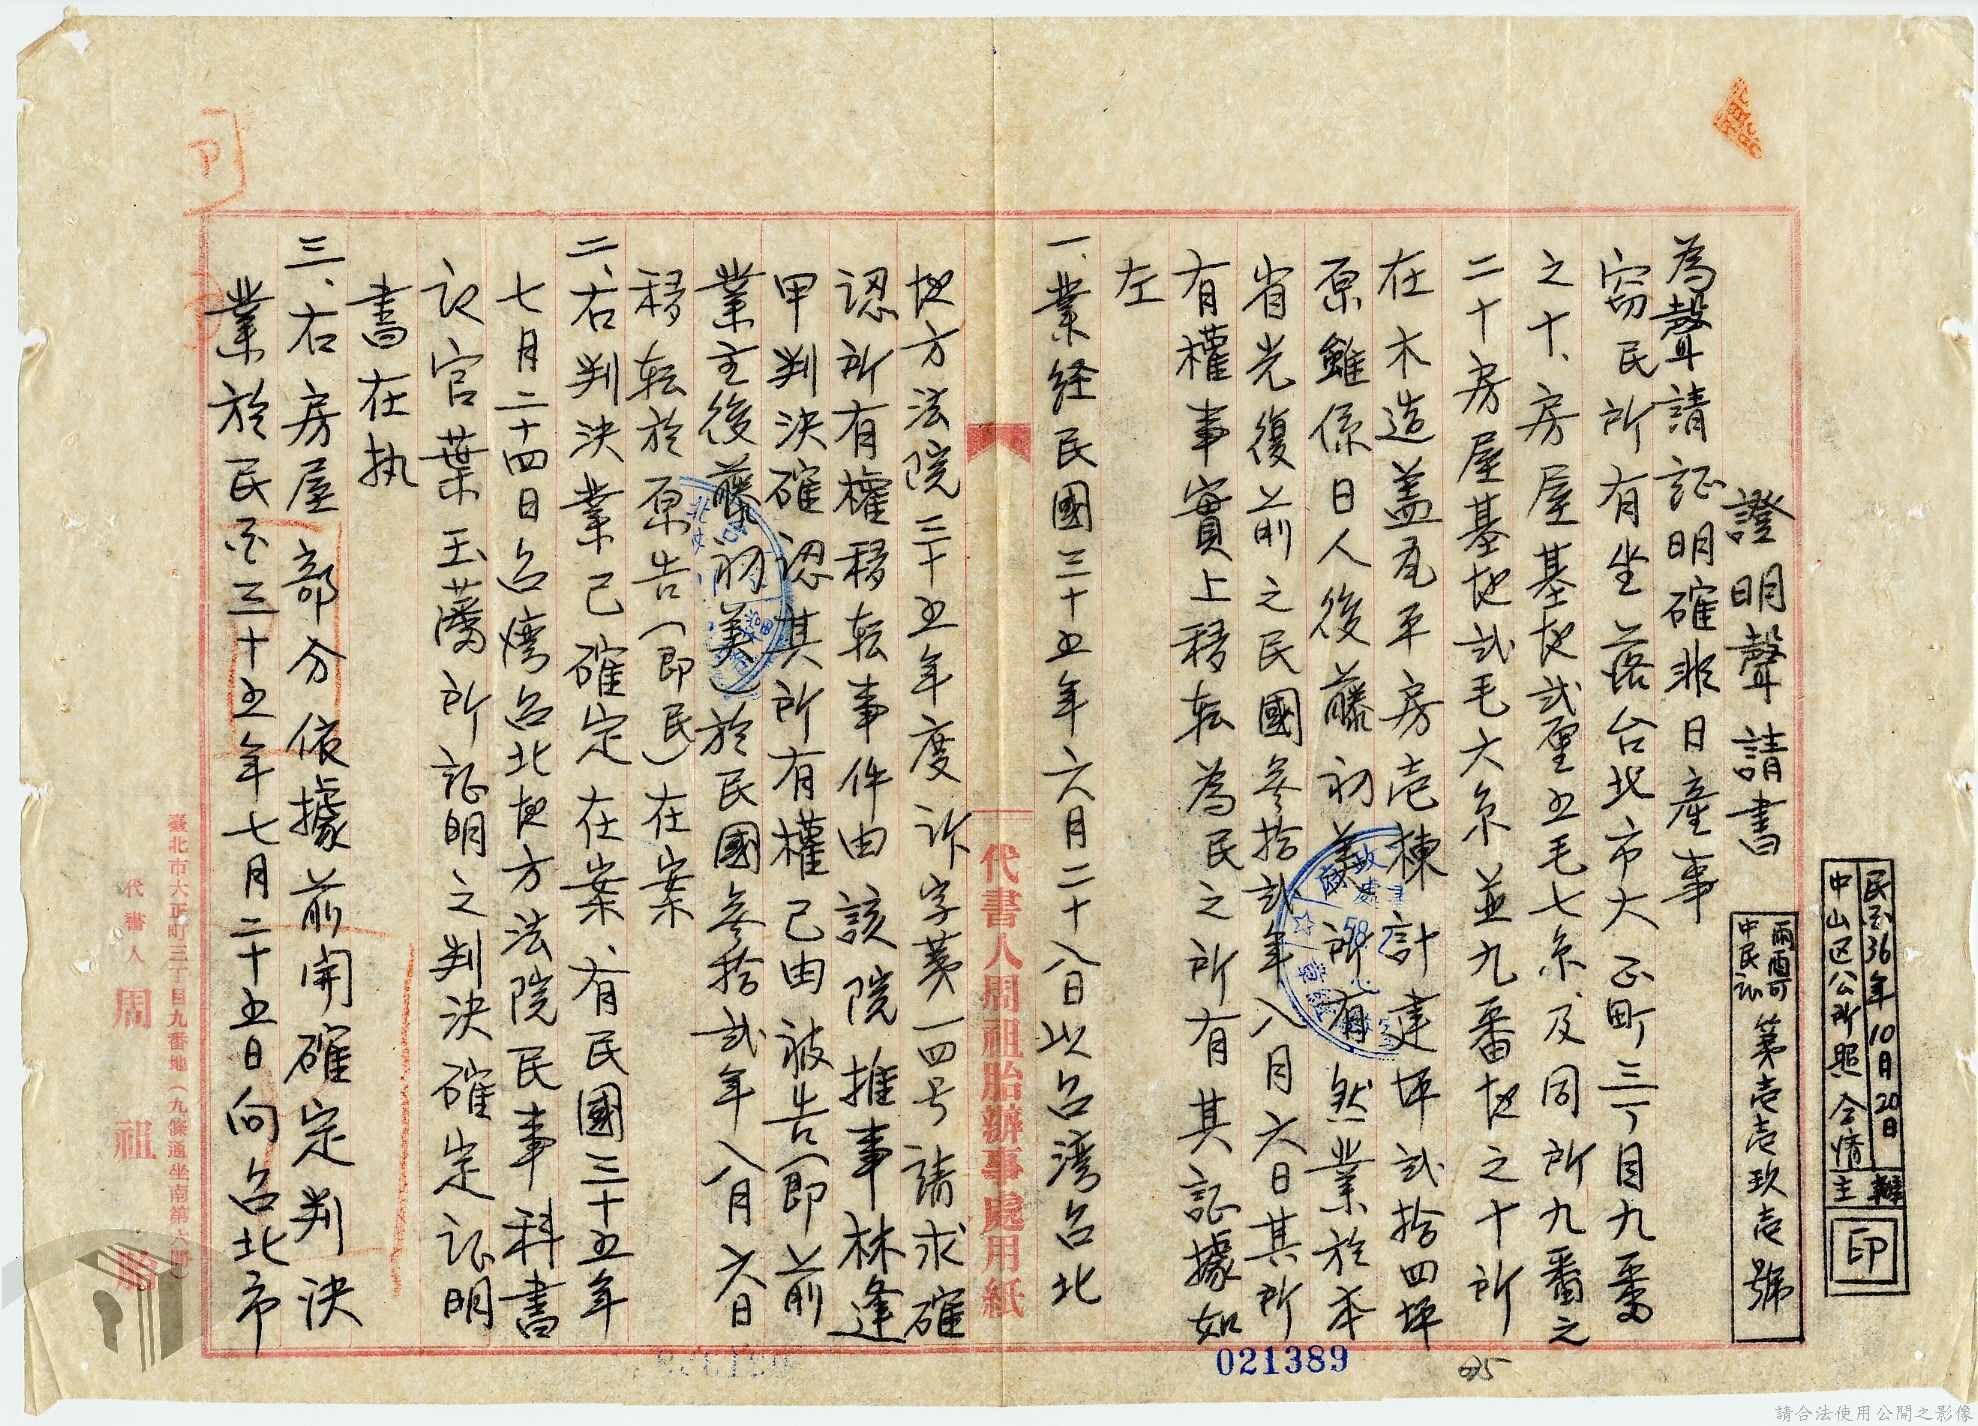 民国36年10月20日
中山区公所照 会情 主辦
印
雨酉可
中民訟 第壱壱玖壱號
證明聲請書
為聲請証明確非日產事
窃民所有坐落台北市大正町三丁目九番
之十、房屋基地弍厘五毛七糸、及同所九番之
二十房屋基地弍毛六糸並九番地之十所
在木造盖瓦平房壱棟計建坪弍拾四坪
原雖係日人後藤初美所有然業於本
省光復前之民國參拾弍年八月六日其所
有權事實上移転為民之所有其証據如
左
一、業経民國三十五年六月二十八日以台湾台北
代書人周祖胎辦事處用紙
地方法院三十五年度訴字第一四号請求確
認所有權移転事件由該院推事林逢
甲判決確認其所有權已由被告(即前
業主後藤初美)於民國參拾弍年八月六日
移転於原告(即民)在案
二、右判決業已確定在案、有民國三十五年
七月二十四日台湾台北地方法院民事科書
記官葉玉藩所証明之判決確定証明
書在执
三、右房屋部分依據前開確定判決
業於民国三十五年七月二十五日向台北市
臺北市大正町三丁目九番地(九條通坐南第六間)
代書人 周祖胎
021389
請合法使用公開之影像